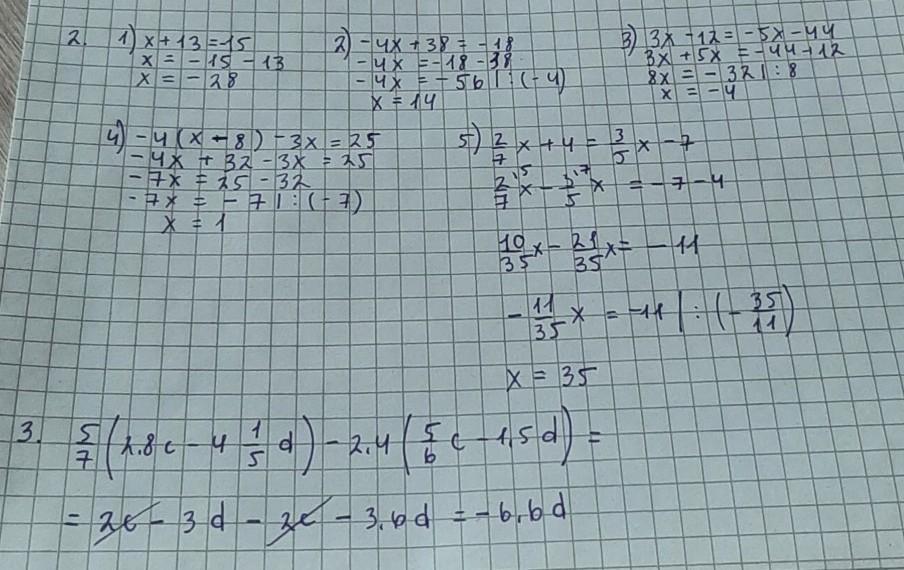 2. 1) x + 13 = -15
x = -15 - 13
x = -28
2) -4x + 38 = -18
-4x = -18 - 38
-4x = -56 | : (-4)
x = 14
3) 3x - 12 = -5x - 44
3x + 5x = -44 + 12
8x = -32 | : 8
x = -4
4) -4(x - 8) - 3x = 25
-4x + 32 - 3x = 25
-7x = 25 - 32
-7x = -7 | : (-7)
x = 1
5) 2/7 x + 4 = 3/5 x - 7
2·5/7 x - 3·7/5 x = -7 - 4
10/35 x - 21/35 x = -11
-11/35 x = -11 | : (-35/11)
x = 35
3. 5/7 (2.8c - 4 1/5 d) - 2.4 (5/6 c - 1,5d) =
= 2c - 3d - 2c - 3.6d = -6.6d